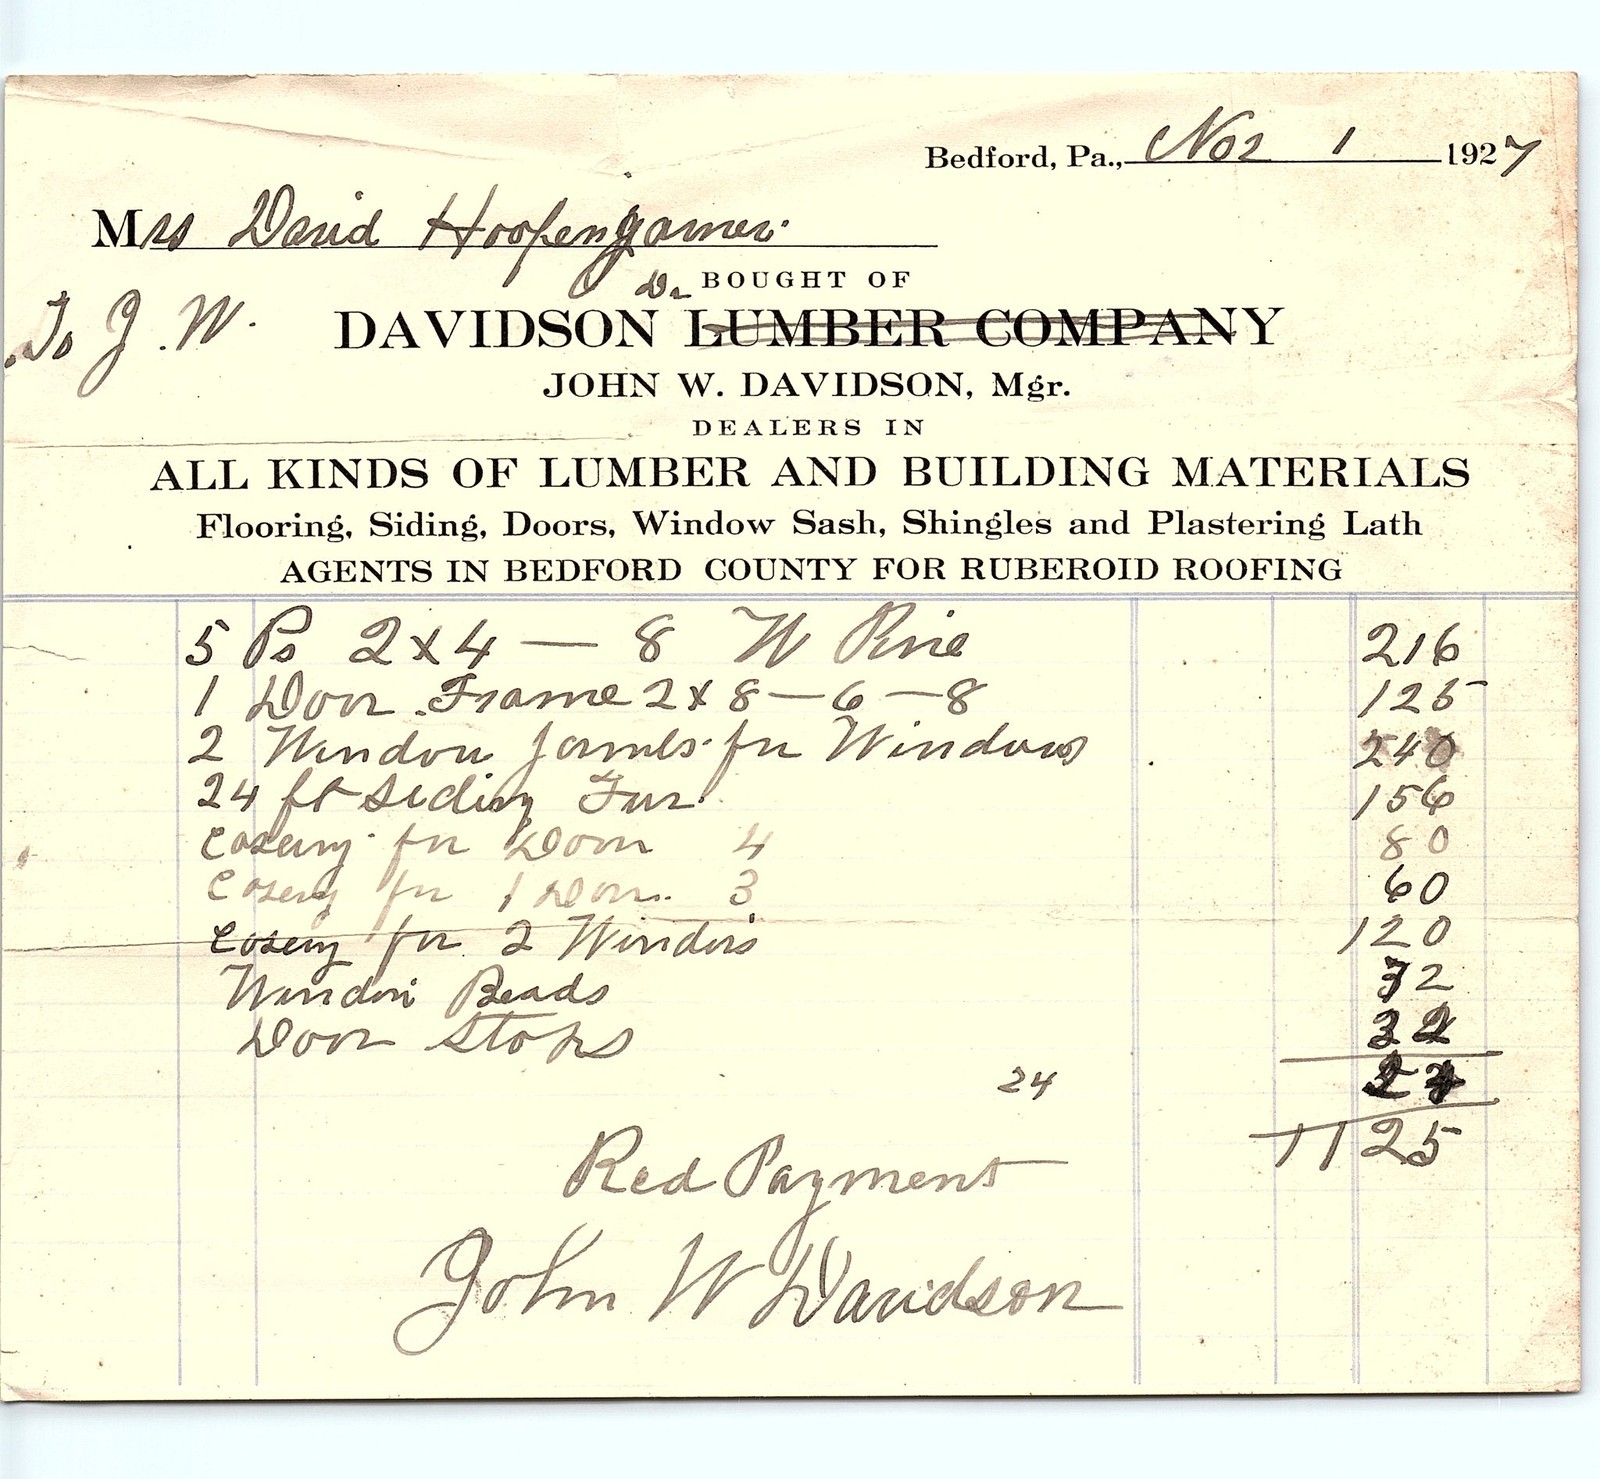 Bedford, Pa., Nov 1 1927
Mrs David Hoopengarner
Dr BOUGHT OF
To J. W. DAVIDSON LUMBER COMPANY
JOHN W. DAVIDSON, Mgr.
DEALERS IN
ALL KINDS OF LUMBER AND BUILDING MATERIALS
Flooring, Siding, Doors, Window Sash, Shingles and Plastering Lath
AGENTS IN BEDFORD COUNTY FOR RUBEROID ROOFING
5 Ps 2x4 — 8 W Pine 216
1 Door Frame 2x8—6—8 125
2 Window for Windows 240
24 ft Siding 156
Caseing for Door 4 80
Caseing for 1 Door 3 60
Caseing for 2 Windows 120
Window Beads 72
Door Stops 32
24 24
1125
Red Payment
John W Davidson